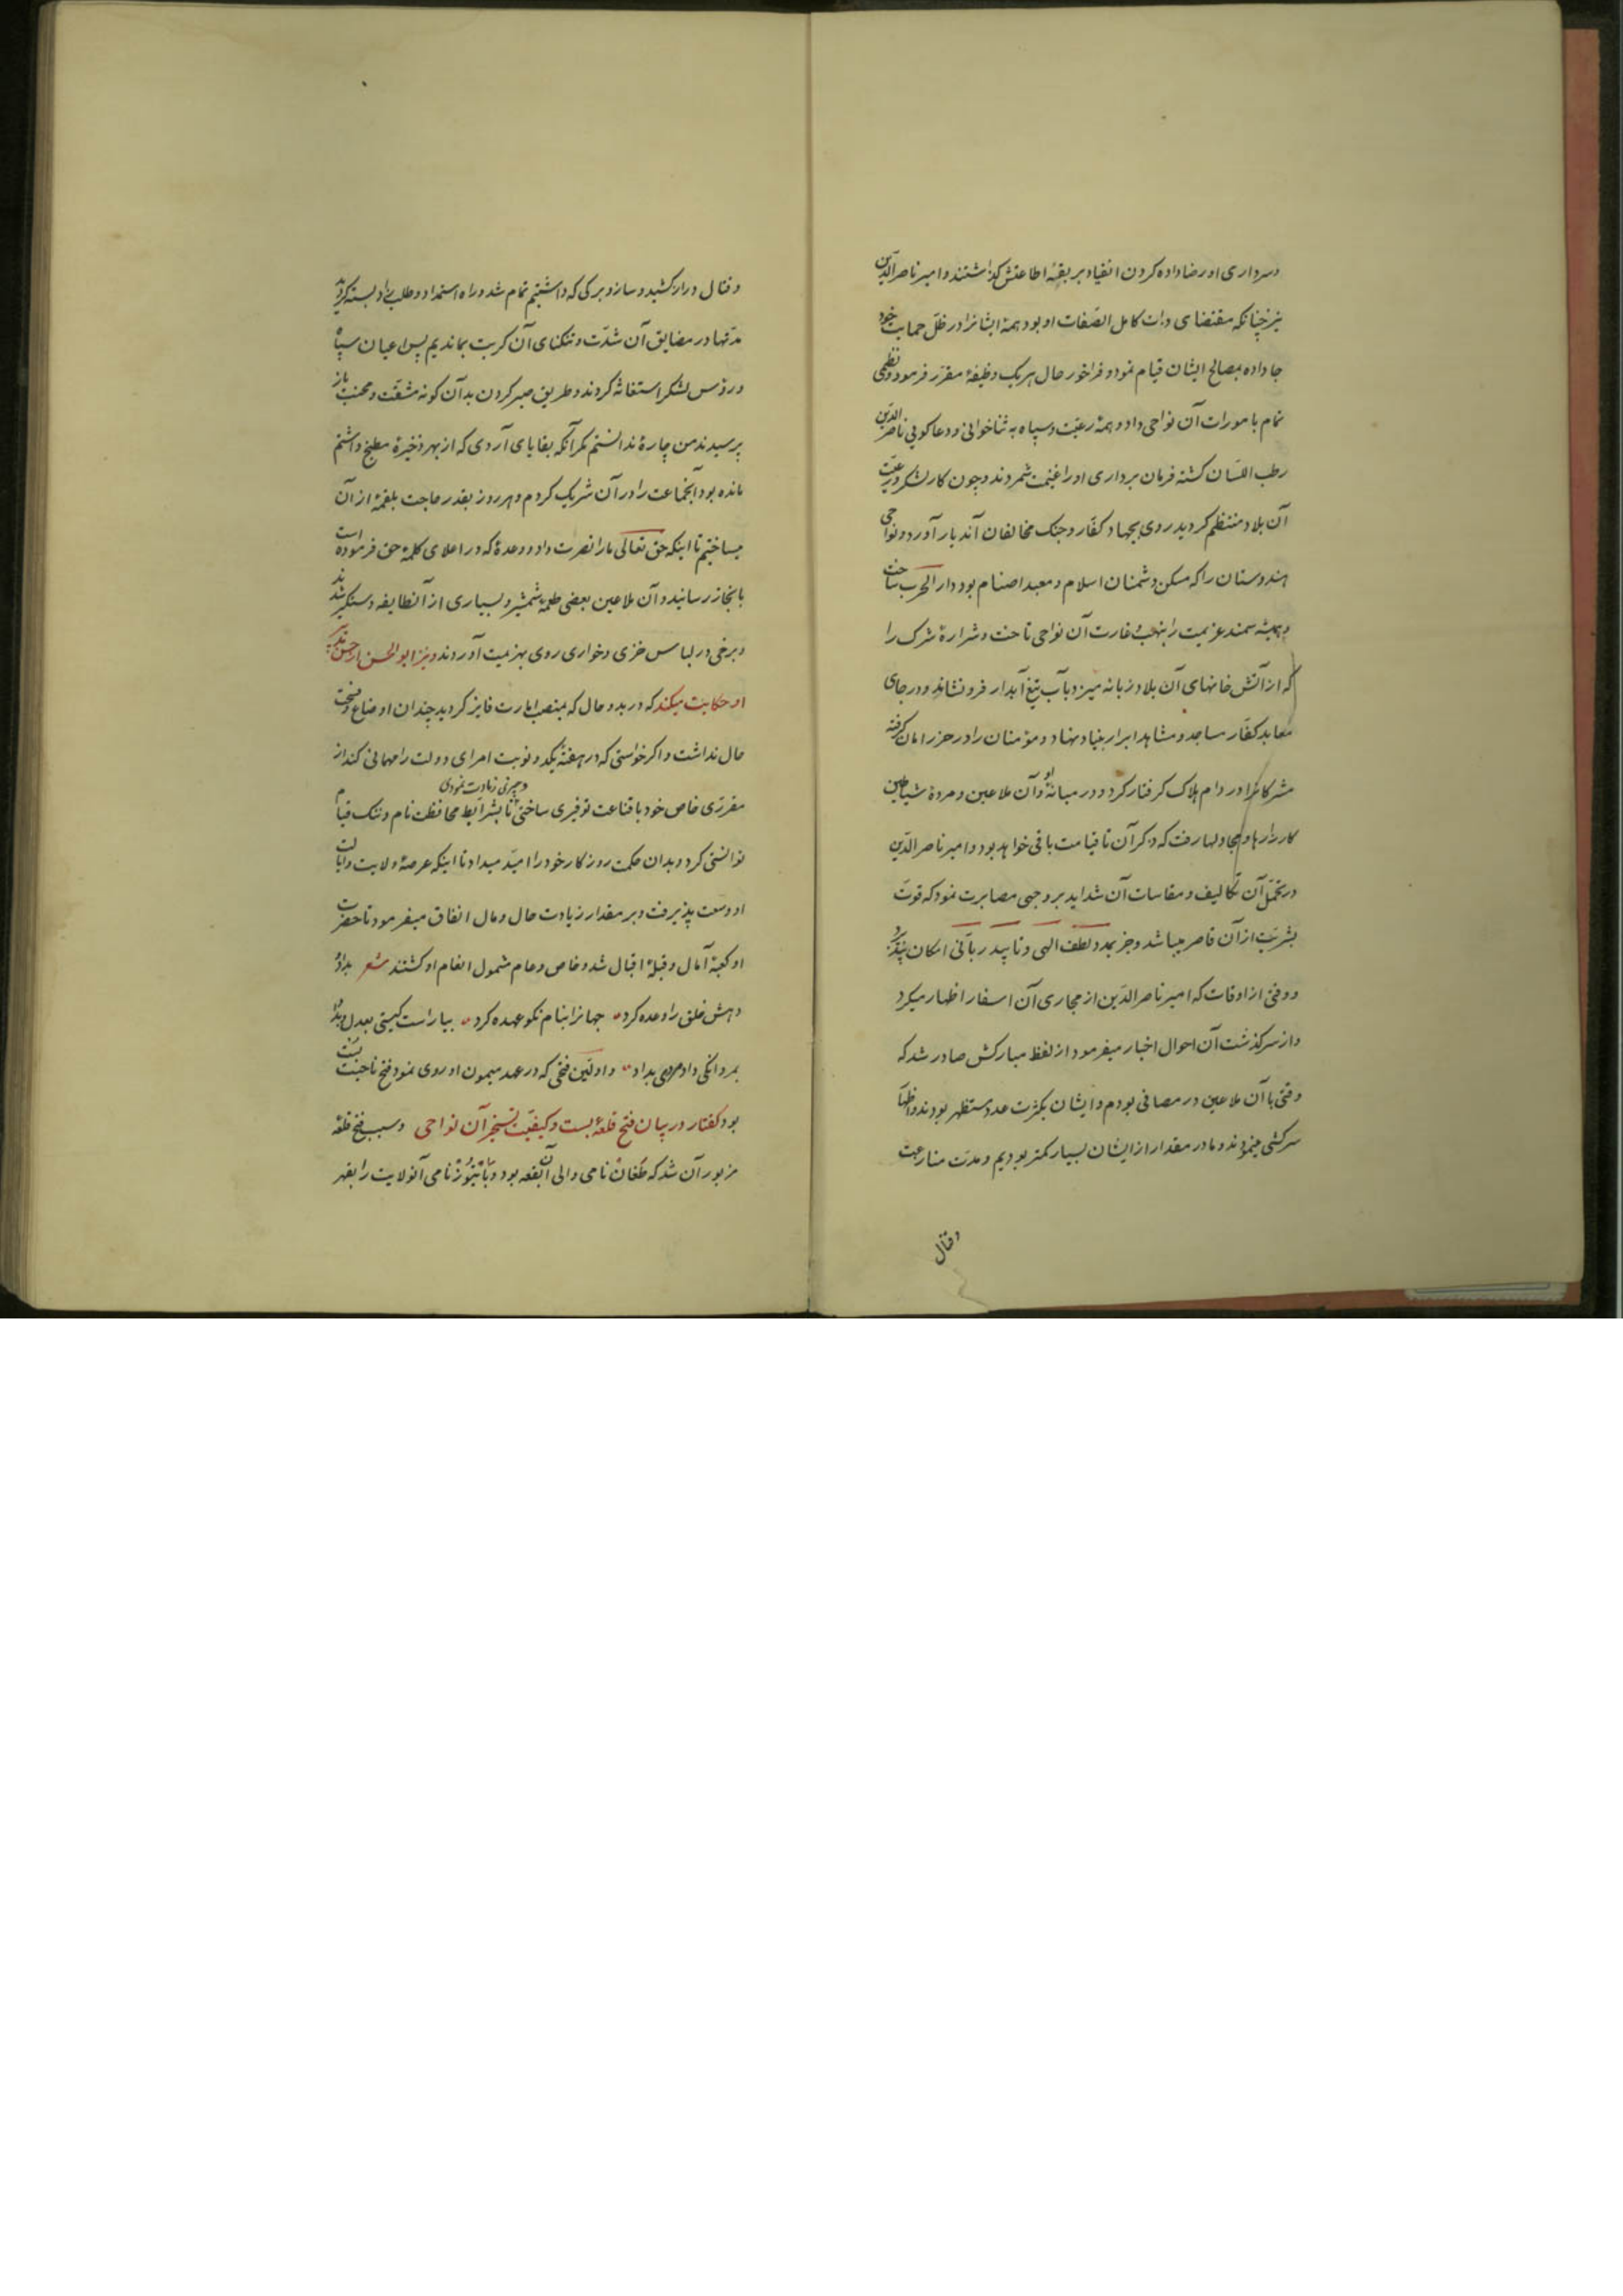 و سرداری او رضا داده کردن انقیاد بر بقهٔ اطاعتش گذاشتند و امیر ناصر الدّین
نیز چنانکه مقتضای ذات کامل الصّفات او بود همهٔ ایشانرا در ظلّ حمایت خود
جا داده بمصالح ایشان قیام نمود و فراخور حال هر یک وظیفهٔ مقرّر فرمود و نظمی
تمام بامورات آن نواحی داد و همهٔ رعیّت و سپاه به ثناخوانی و دعاکویی ناصر الدّین
رطب اللسان کشته فرمان برداری او را غنیمت شمردند و چون کار لشکر و رعیّت
آن بلاد منتظم کردید روی بجهاد کفّار و جنک مخالفان آندیار آورد و نواحی
هندوستان را که مسکن دشمنان اسلام و معبد اصنام بود دار الحرب ساخت
و همیشه سمند عزیمت را بنهب و غارت آن نواحی تاخت و شرارهٔ شرک را
که از آتش خانهای آن بلاد زبانه میزد بآب تیغ آبدار فرو نشاند و در جای
معابد کفّار مساجد و مشاهد ابرار بنیاد نهاد و مؤمنان را در حرز امان کرفته
مشرکانرا در دام هلاک کرفتار کرد و در میانهٔ او و آن ملاعین و مردهٔ شیاطین
کارزارها و مجادلها رفت که ذکر آن تا قیامت باقی خواهد بود و امیر ناصر الدّین
در تحمّل آن تکالیف و مقاسات آن شداید بر وجهی مصابرت نمود که قوّت
بشریّت از آن قاصر میباشد و جز بمدد لطف الهی و تایید ربّانی امکان پذیرد
و وقتی از اوقات که امیر ناصر الدّین از مجاری آن اسفار اظهار میکرد
و از سرکذشت آن احوال اخبار میفرمود از لفظ مبارکش صادر شد که
وقتی با آن ملاعین در مصافی بودم و ایشان بکثرت عدد مستظهر بودند و اظهار
سرکشی مینمودند و ما در مقدار از ایشان بسیار کمتر بودیم و مدّت منازعت
وقتال
وقتال دراز کشید و ساز و برکی که داشتیم تمام شد و راه استمداد و طلب زاد بسته کردید
مدّتها در مضایق آن شدّت و تنکنای آن کربت بماندیم پس اعیان سپاه
و رؤس لشکر استغاثه کردند و طریق صبر کردن بدآن کونه مشقّت و محنت باز
پرسیدند من چارهٔ ندانستم مکر آنکه بقایای آردی که از بهر ذخیرهٔ مطبخ داشتم
مانده بود آنجماعت را در آن شریک کردم و هر روز بقدر حاجت بلقمهٔ از آن
میساختیم تا اینکه حق تعالی ما را نصرت داد و وعدهٔ که در اعلای کلمهٔ حق فرموده است
بانجاز رسانید و آن ملاعین بعضی طعمهٔ شمشیر و بسیاری از آنطایفه دستکیر شدند
و برخی در لباس خزی و خواری روی بهزیمت آوردند و نیز ابو الحسن از حسن تدبیر
او حکایت میکند که در بدو حال که بمنصب امارت فایز کردید چندان اوضاع و فسحت
حال نداشت و اکر خواستی که در هفتهٔ یکدو نوبت امرای دولت را مهمانی کند از
مقرّری خاص خود با قناعت توفیری ساختی و چیزی زیادت نمودی تا بشرایط محافظت نام و ننک قیام
توانستی کرد و بدان حکمت روزکار خود را امید میداد تا اینکه عرصهٔ ولایت و ایالت
او وسعت پذیرفت و بر مقدار زیادت حال و مال انفاق میفرمود تا حضرت
او کعبهٔ آمال و قبلهٔ اقبال شد و خاص و عام شمول انعام او کشتند شعر بداد
دهش خلق را وعده کرد جهانرا بنام نکو عهده کرد بیاراست کیتی بعدل و بداد
بمردانکی داد مردی بداد و اوّلین فتحی که در عهد میمون او روی نمود فتح ناحیت بست
بود کفتار در بیان فتح قلعهٔ بست و کیفیّت تسخیر آن نواحی و سبب فتح قلعهٔ
مزبور آن شد که طغان نامی والی آن بقعه بود و بایتوز نامی آنولایت را بقهر